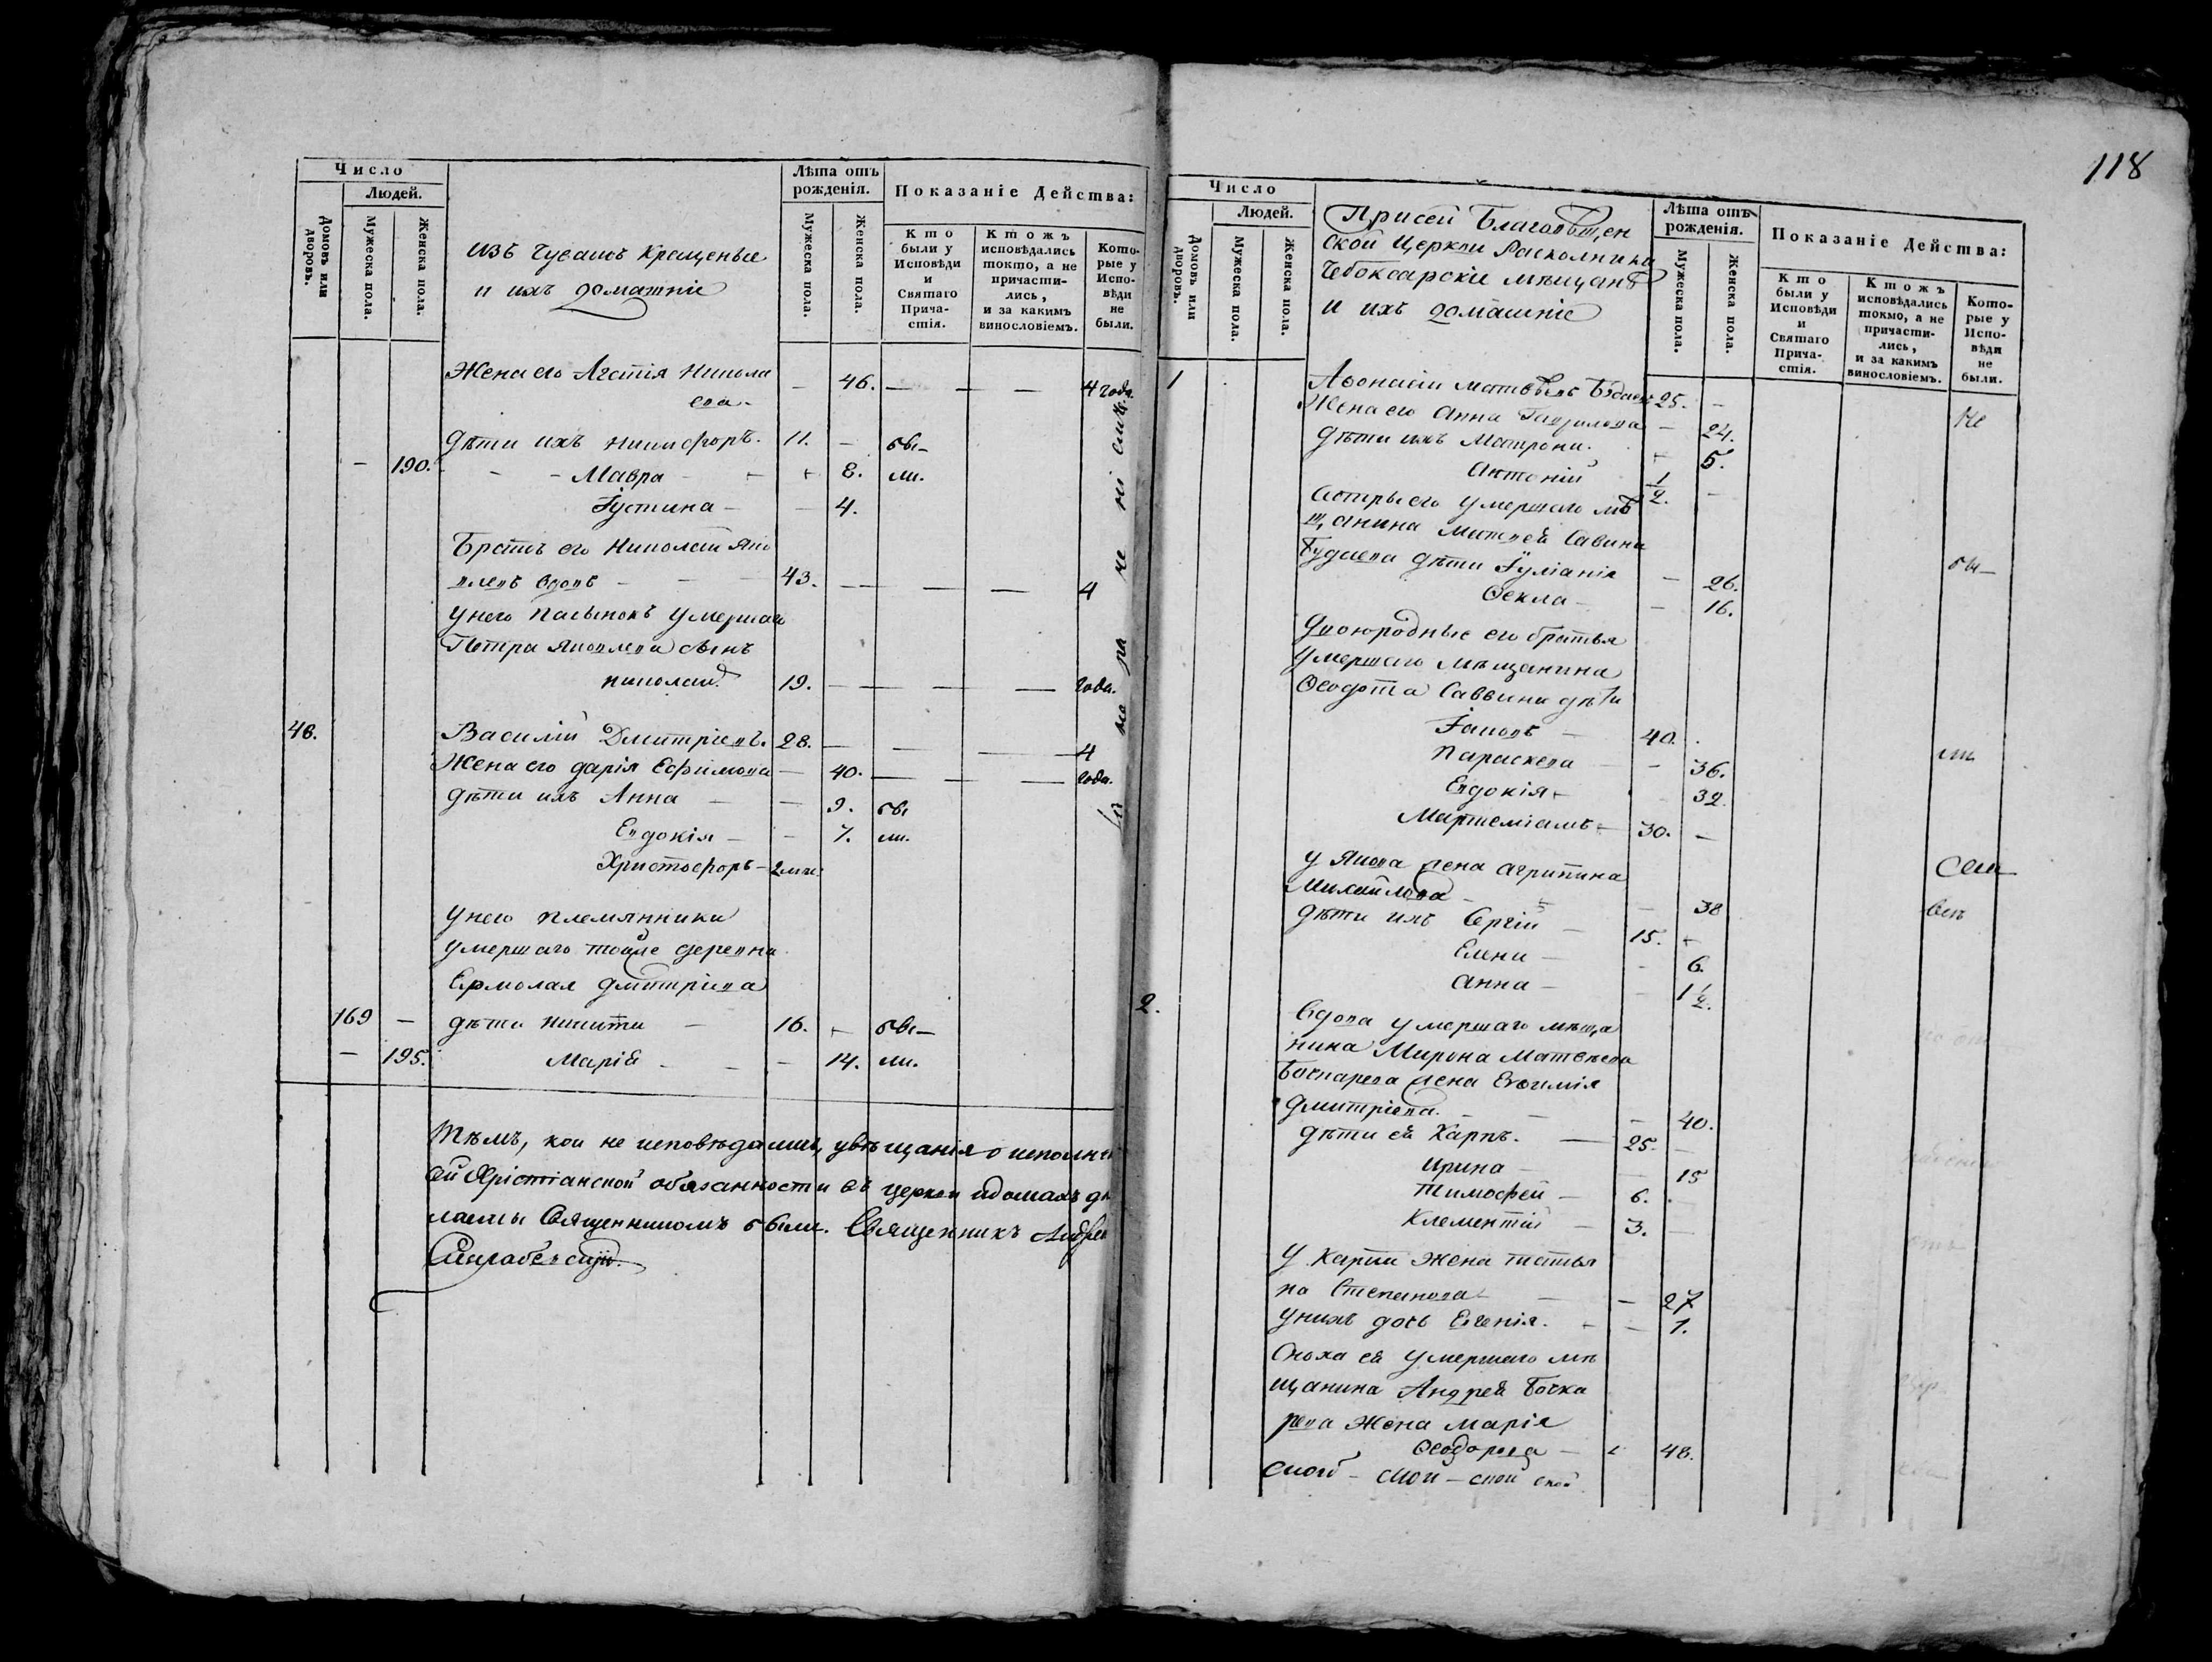 Число
Людей.
Домовъ или дворовъ.
Мужеска пола.
Женска пола.
изъ Чувашъ Крещеные
и ихъ домашніе
Лѣта отъ рожденія.
Мужеска пола.
Женска пола.
Показаніе Дѣйства:
Кто были у Исповѣди и Святаго Прича-стія.
Ктожъ исповѣдались токмо, а не причасти-лись, и за какимъ винословіемъ.
Кото-рые у Испо-вѣди не были.
Жена его Агафія Никола
ева - — 46. — — — 4 года.
Дѣти ихъ Никифоръ. 11. — бы-
— 190. - - Мавра - - + 8. ли.
Іустина - — 4.
Братъ его Николай Яко
влевъ вдовъ - — — 43. — — — — 4
у него пасынокъ умершаго
Петра Яковлева сынъ
Николай 19. — — — — года.
48. Василій Дмитріевъ. 28. — — — 4
Жена его Дарія Ефимова — 40. — — — года.
дѣти ихъ Анна — — 9. бы
Евдокія — - 7. ли.
Христофоръ - 2 мѣс.
у него племянники
умершаго тойже деревни
Ермолая Дмитріева
169 — дѣти Никита — 16. - бы-
— 195. Марія - - — 14. ли.
Тѣмъ, кои не исповѣдались, увѣщанія о исполне
сей Хрістіанской обязанности въ церкви и домахъ дѣ
лаемы Священникомъ были. Священникъ Андрей
118
Число
Людей.
Домовъ или дворовъ.
Мужеска пола.
Женска пола.
При сей Благовѣщен
ской Церкви Раскольники
Чебоксарскіе мѣщанѣ
и ихъ домашніе
Лѣта отъ рожденія.
Мужеска пола.
Женска пола.
Показаніе Дѣйства:
Кто были у Исповѣди и Святаго Прича-стія.
Ктожъ исповѣдались токмо, а не причасти-лись, и за какимъ винословіемъ.
Кото-рые у Испо-вѣди не были.
1 Афонасій Матвѣевъ Будаевъ 25. —
Жена его Анна Гаврилова — 24. Не
дѣти ихъ Матрона. + 5.
Антоній 1/2. —
Сестры его умершаго мѣ
щанина Матвея Савина
Будаева дѣти Іуліанія — 26. бы-
Ѳекла — — 16.
Двоюродные его братья
умершаго мѣщанина
Ѳеодота Саввина дѣти
Іаковъ — 40.
Параскева — - 36.
Евдокія - 32.
Мартеміамъ - 30. —
у Якова жена Агрипина
Михайлова - — 38
дѣти ихъ Сергій — 15. -
Елена — - 6.
Анна — 1 1/2.
2. Вдова умершаго мѣща
нина Мирона Матвѣева
Бочкарева жена Евфимія
Дмитріева. - — — 40.
дѣти ея Карпъ. — 25. —
Ирина — — 15
Тимофей — 6. .
Клементій — 3. —
у Карпа жена Татья
на Степанова — — — 27
у нихъ дочь Евгенія. - — 1.
Сноха ея умершаго мѣ
щанина Андрея Бочка
рева жена Марія
Ѳеодорова — 48.